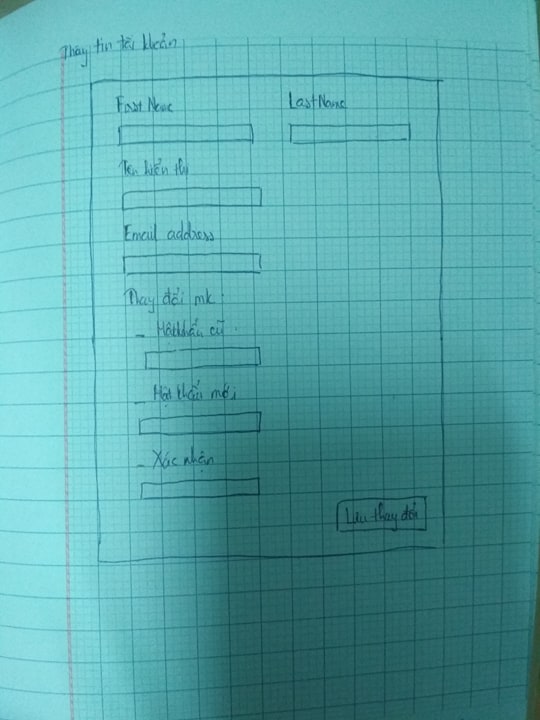 Thay tin tài khoản
First Name
Last Name
Tên hiển thị
Email address
Thay đổi mk:
- Mật khẩu cũ
- Mật khẩu mới
- Xác nhận
Lưu thay đổi